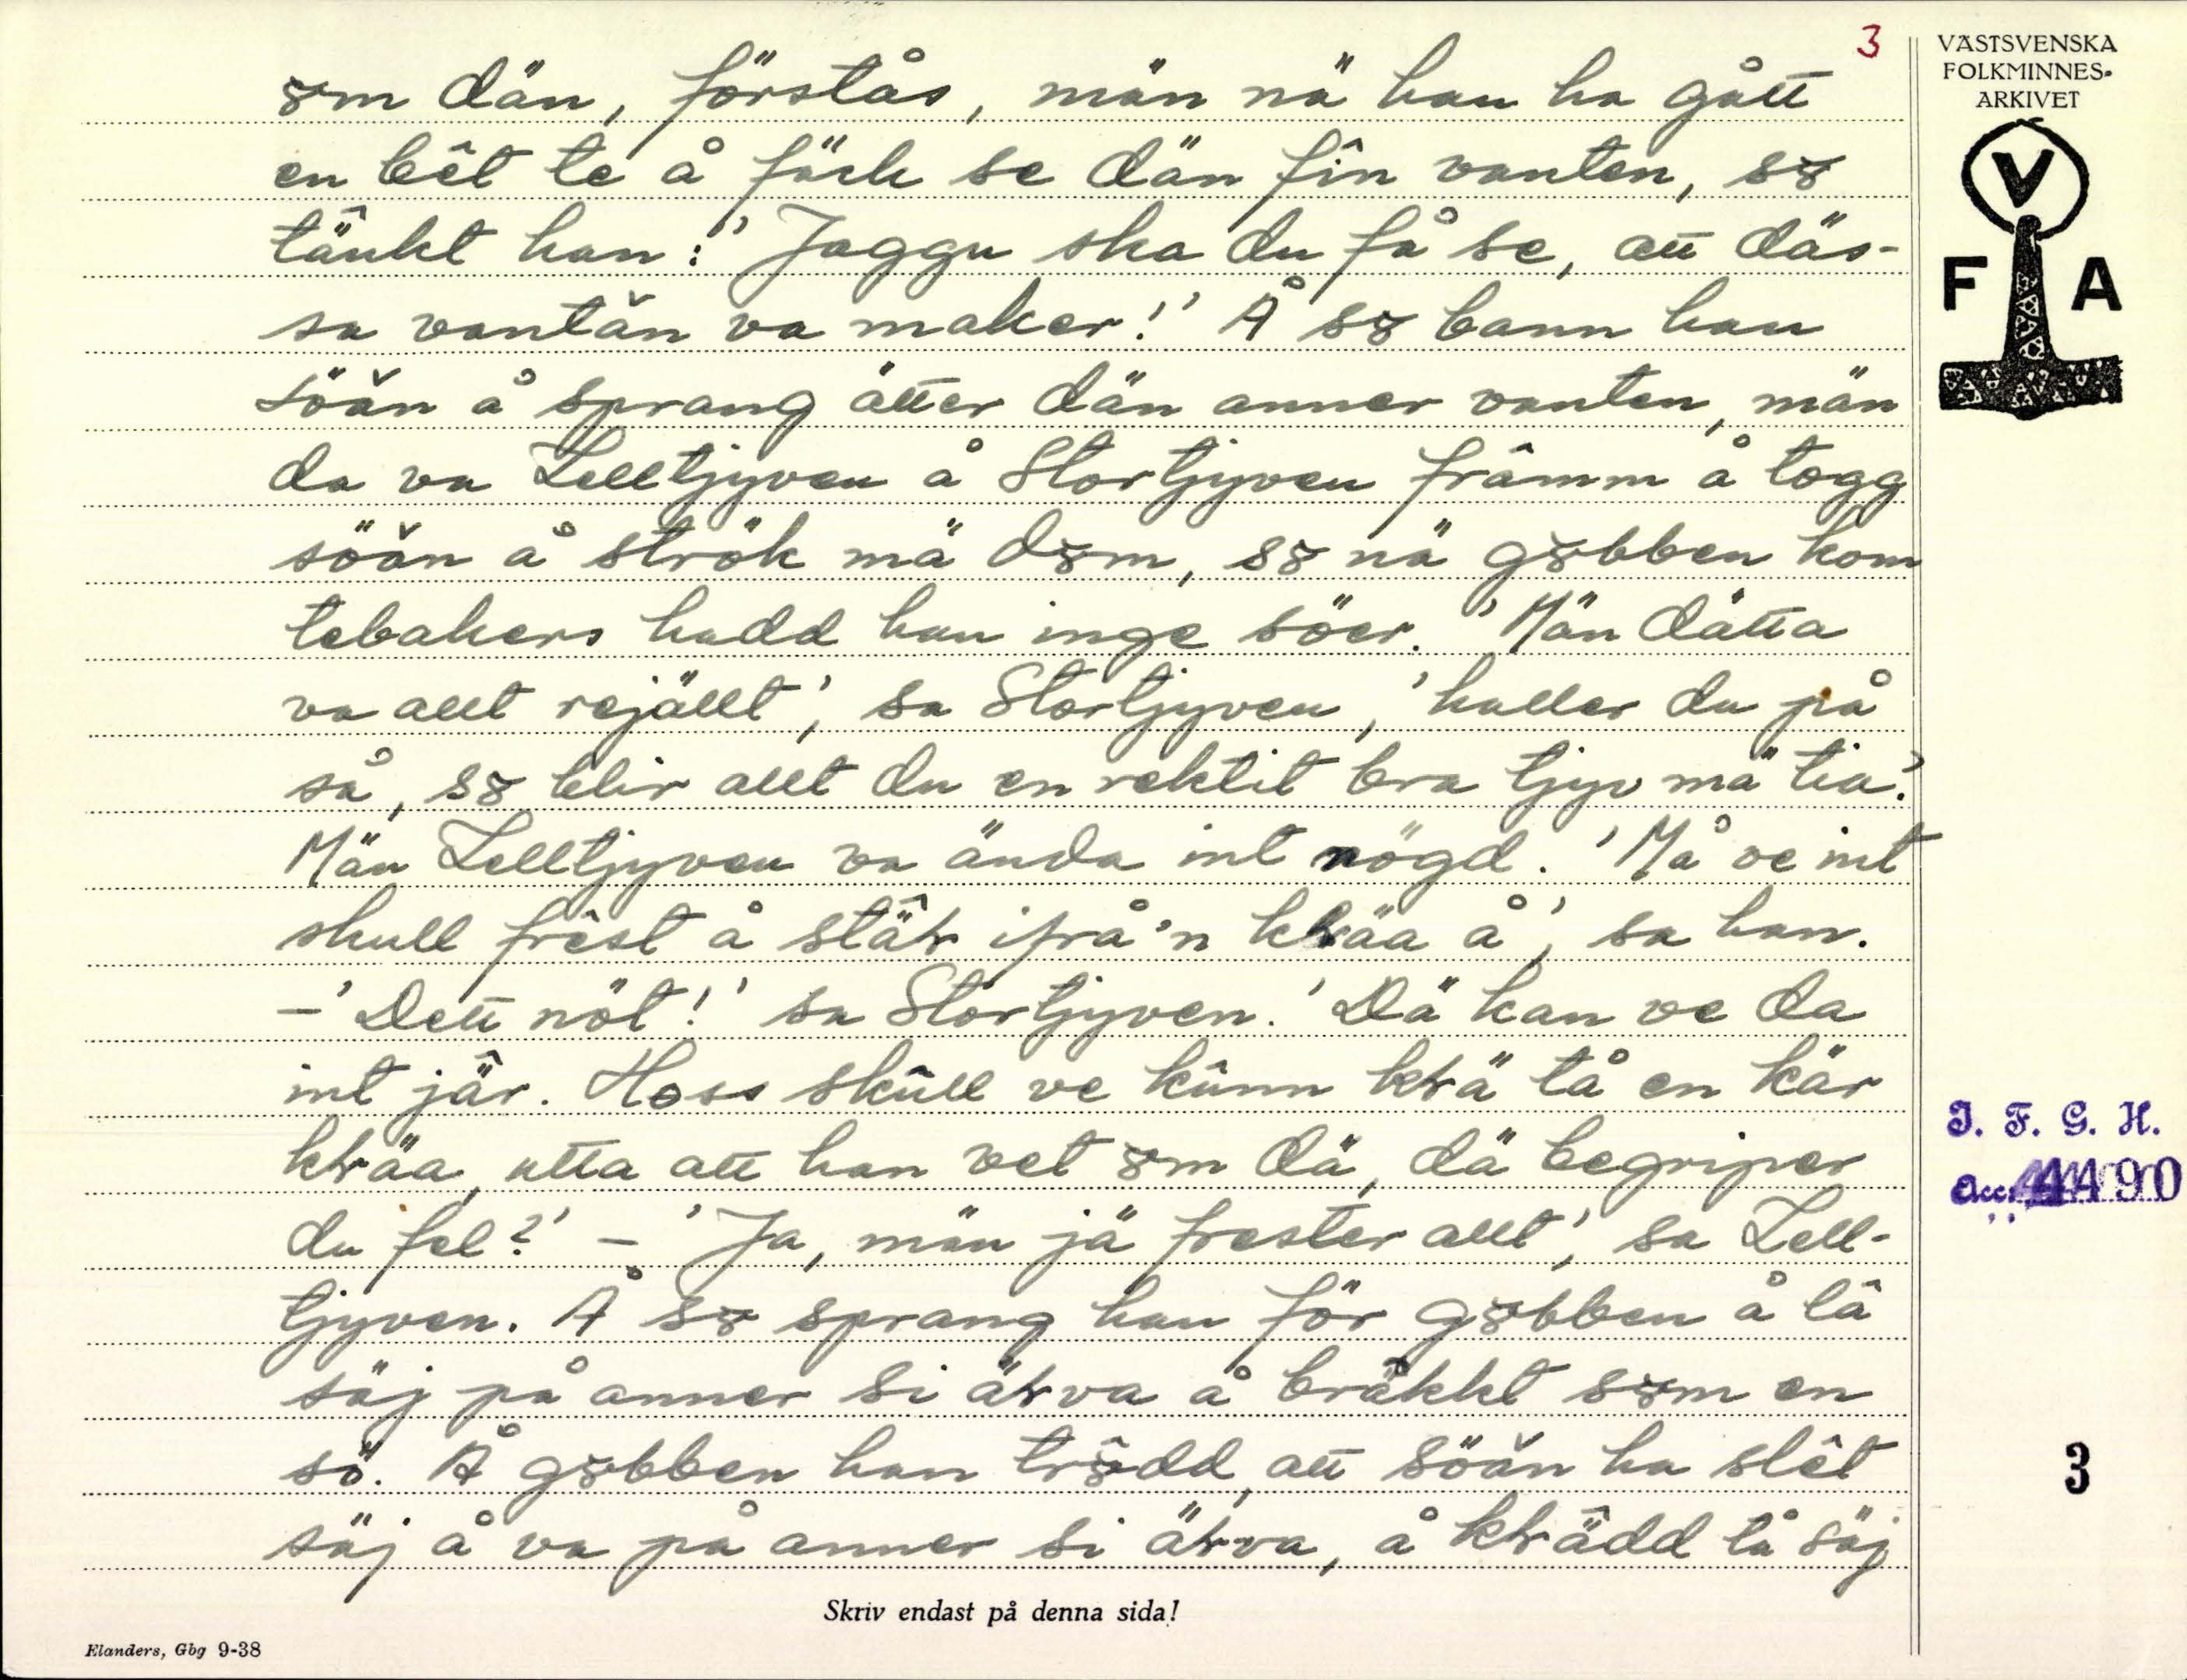 3
VÄSTSVENSKA
FOLKMINNES-
ARKIVET
V
F A
ȣm dän, förstås, män nä han ha gått
en bêt te å fäck se dän fîn vanten, sȣ
tänkt han: 'Jaggu ska du få se, att däs-
sa vantăn va maker!' Å sȣ bann han
söăn å sprang ätter dän anner vanten, män
da va Lelltjyven å Stortjyven främm å togg
söăn å strök mä dȣm, sȣ nä gȣbben kom
tebakers hadd han inge söer. 'Män dätta
va allt rejällt', sa Stortjyven, 'haller du på
så, sȣ blir allt du en rektit bra tjyv mä tia.'
Män Lelltjyven va ända int nögd. 'Må ve int
skull frêst å stäƚ ifrå'n kƚäa å', sa han.
– 'Dett nöt!' sa Stortjyven. 'Dä kan ve da
int jär. Hoss skull ve kûnn kƚä tå en kär
kƚäa, utta att han vet ȣm dä, dä begriper
du fel?' – 'Ja, män jä frester allt', sa Lell-
tjyven. Å sȣ sprang han för gȣbben å lâ
säj på anner si äƚva å bräkkt sȣm en
sö. Å gȣbben han trȣdd, att söăn ha slêt
säj å va på anner si äƚva, å kƚädd tå säj
I. F. G. H.
Acc. 4490
3
Skriv endast på denna sida!
Elanders, Gbg 9-38